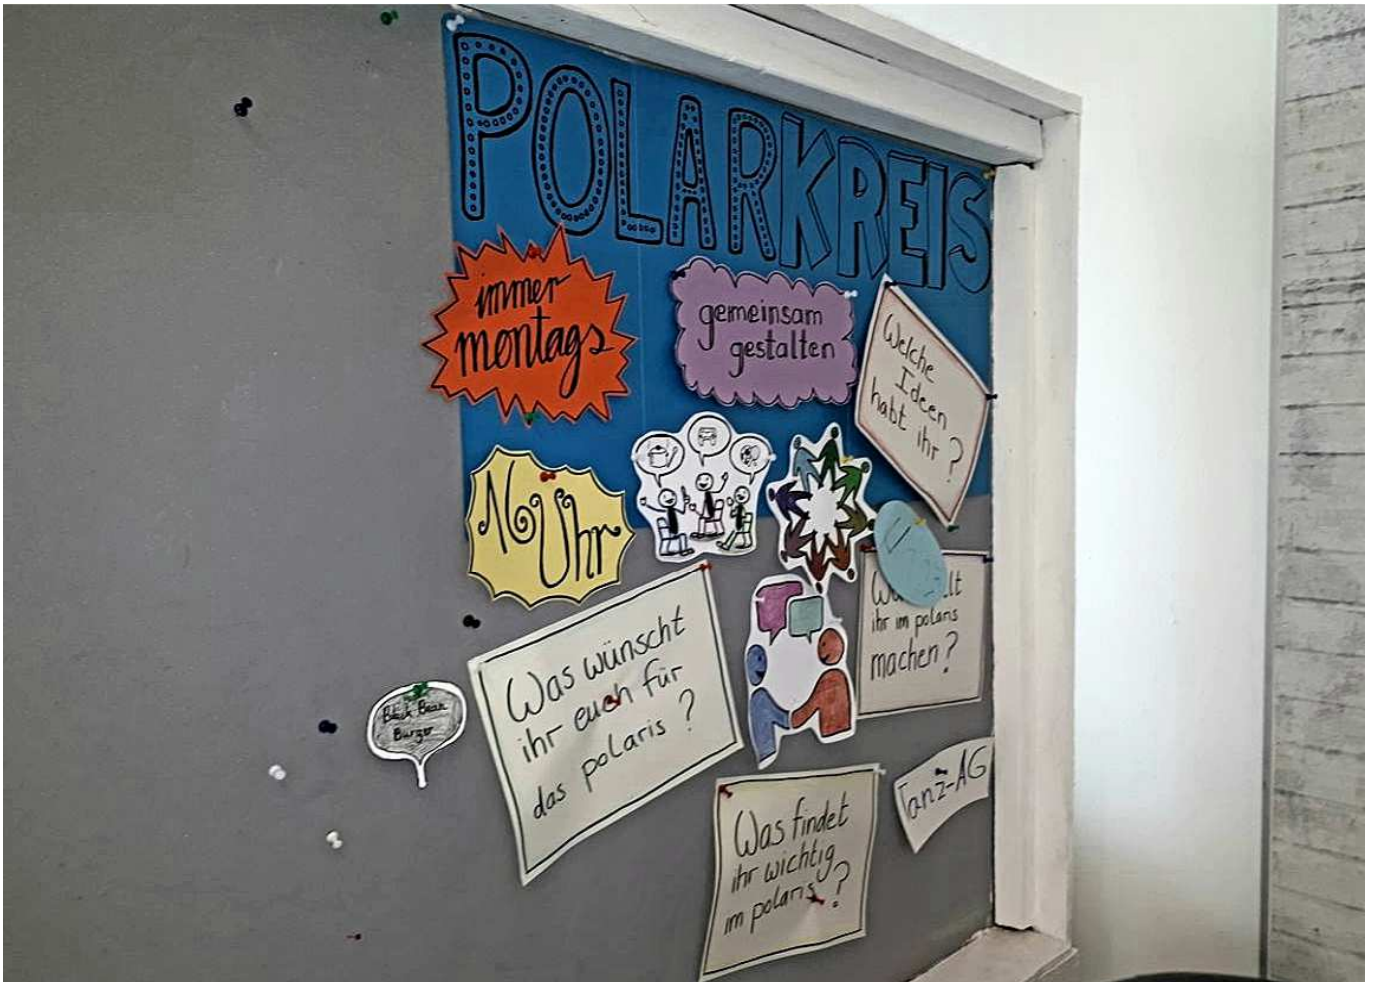 POLARKREIS
immer
montags
gemeinsam
gestalten
Welche
Ideen
habt ihr?
16 Uhr
ihr im polaris
machen?
Was wünscht
ihr euch für
das polaris?
Black Bean
Burger
Tanz-AG
Was findet
ihr wichtig
im polaris?